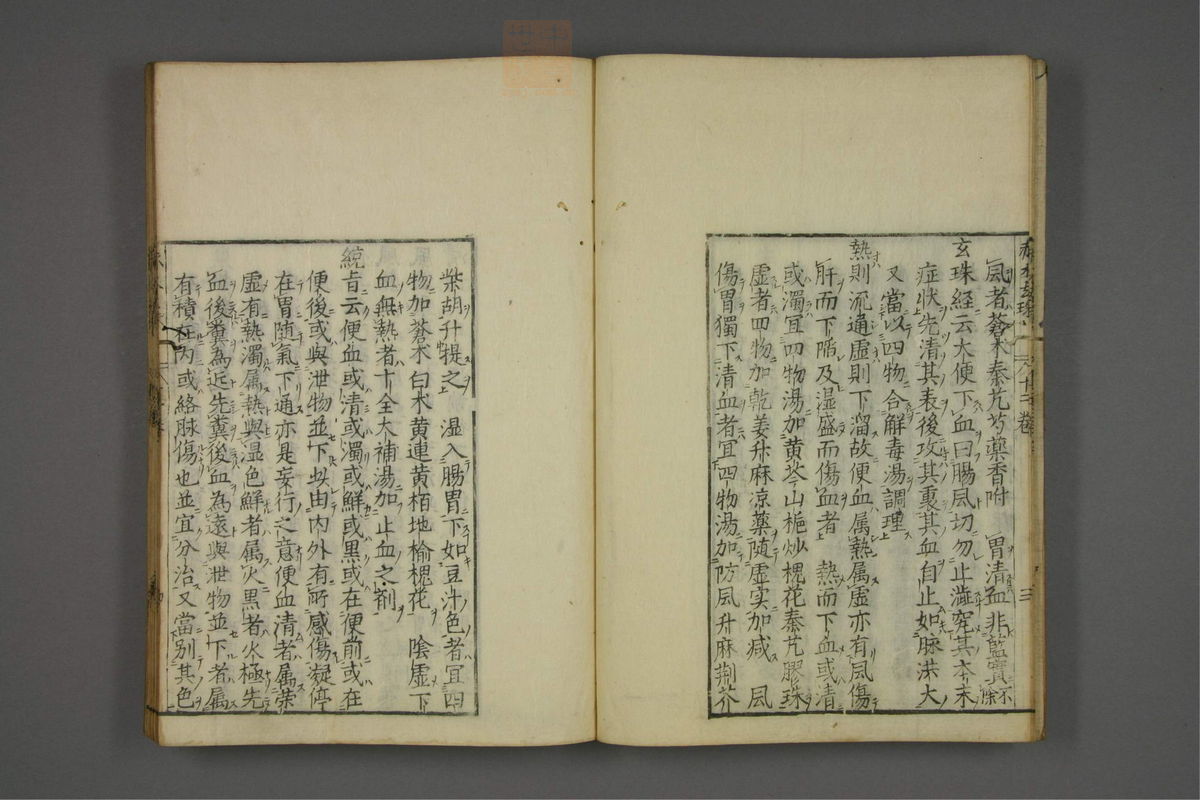 赤水玄珠 八十一卷 三
風者蒼朮秦艽芍藥香附 胃清血非藍實不除
玄珠経云大便下血曰腸風切勿止澁究其本末
症状先清其表後攻其裏其血自止如脉洪大
又當以四物合解毒湯調理
熱則流通虚則下溜故便血属熱属虚亦有風傷
肝而下陷及湿盛而傷血者 熱而下血或清
或濁宜四物湯加黄芩山梔炒槐花秦艽膠珠
虚者四物加乾姜升麻凉藥随虚实加减 風
傷胃獨下清血者宜四物湯加防風升麻荊芥
柴胡升提之 湿入腸胃下如豆汁色者宜四
物加蒼朮白朮黄連黄栢地榆槐花 陰虚下
血無熱者十全大補湯加止血之剤
統旨云便血或清或濁或鮮或黒或在便前或在
便後或與泄物並下此由内外有所感傷凝停
在胃随氣下通亦是妄行之意便血清者属荣
虚有熱濁属熱與湿色鮮者属火黒者火極先
血後糞為近先糞後血為遠與泄物並下者属
有積在内或絡脉傷也並宜分治又當別其色